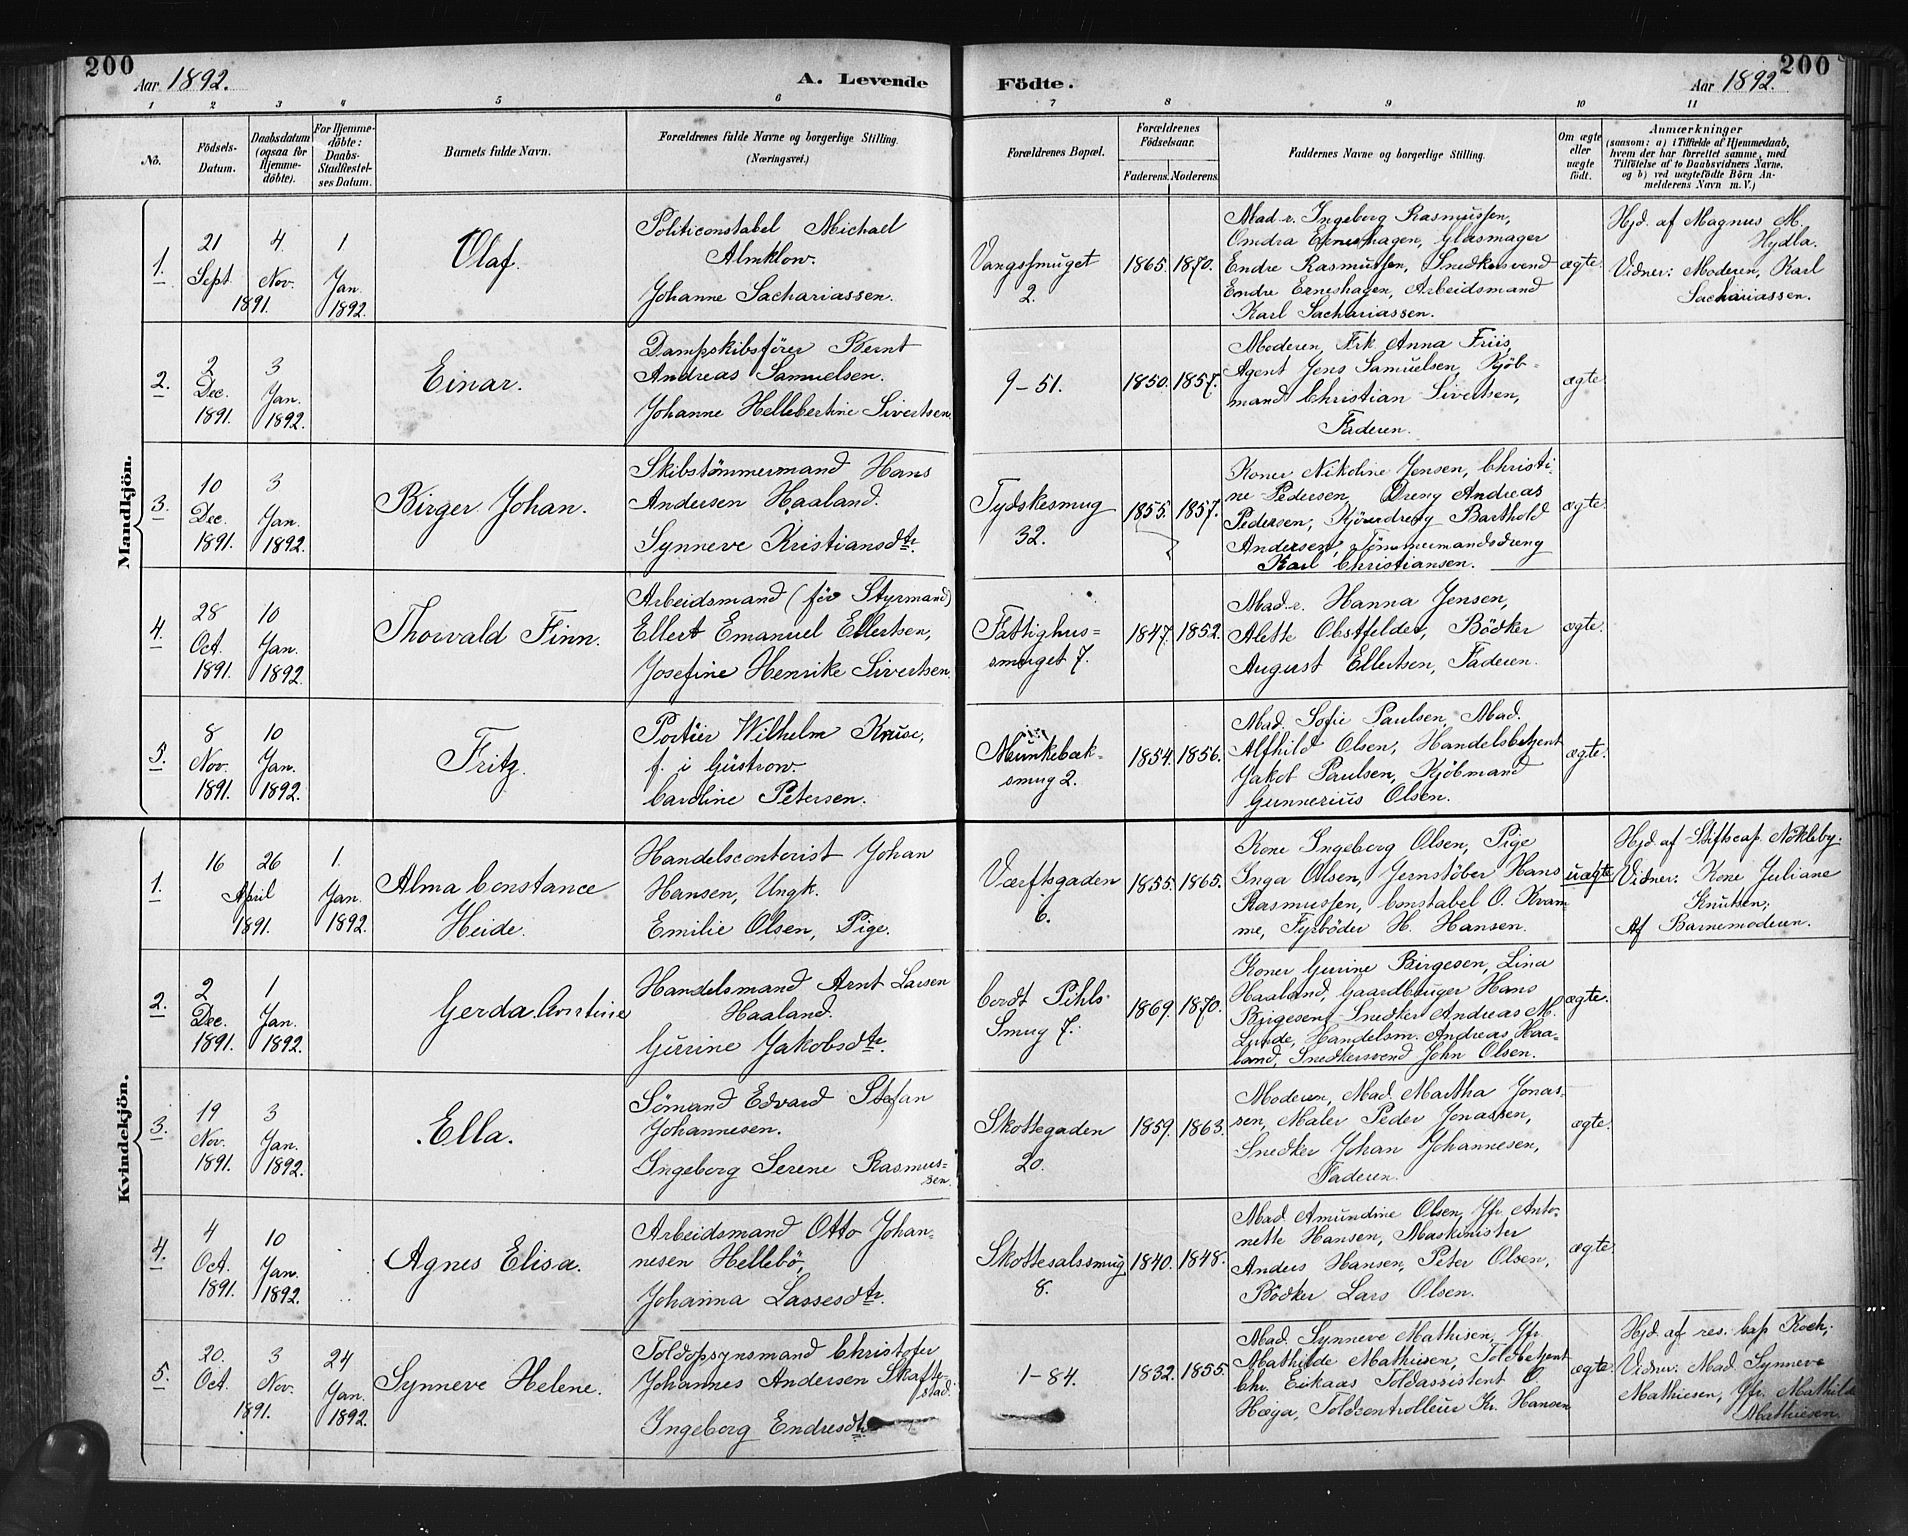 200
Aar 1892.
A. Levende
Födte.
Aar 1892.
200
1 2 3 4 5 6 7 8 9 10 11
No.
Födsels-
Datum.
Daabsdatum
(ogsaa for
Hjemme-
döbte).
For Hjemme-
döbte:
Daabs-
Stadfæstel-
ses Datum.
Barnets fulde Navn.
Forældrenes fulde Navne og borgerlige Stilling.
(Næringsvei.)
Forældrenes Bopæl.
Forældrenes
Födselsaar.
Faderens. Moderens.
Faddernes Navne og borgerlige Stilling.
Om ægte
eller
uægte
födt.
Anmærkninger
(saasom: a) i Tilfælde af Hjemmedaab,
hvem der har forrettet samme, med
Tilföielse af to Daabsvidners Navne,
og b) ved uægtefödte Börn An-
melderens Navn m. V.)
Mandkjön.
1.
21
Sept.
4.
Nov.
1891.
1
Jan.
1892.
Olaf.
Politiconstabel Michael
Almklow.
Johanne Sachariassen.
Vangssmuget
2.
1865. 1870.
Mad-r. Ingeborg Rasmussen,
Omdra Erneshagen, Glasmager
Endre Rasmussen, Snedkersvend
Endre Erneshagen, Arbeidsmand
Karl Sachariassen.
ægte.
Hjd. af Magnus M.
Hydla.
Vidner: Moderen, Karl
Sachariassen.
2.
2
Dec.
1891.
3
Jan.
1892.
Einar.
Dampskibsfører Bernt
Andreas Samuelsen.
Johanne Hellebertine Sivertsen
9-51.
1850. 1857.
Moderen, Frk Anna Friis,
Agent Jens Samuelsen, Kjöb-
mand Christian Sivertsen,
Faderen.
ægte.
3.
10
Dec.
1891.
3
Jan.
1892.
Birger Johan.
Skibstömmermand Hans
Andersen Haaland.
Synneve Kristiansdtr.
Tydskesmug
32.
1855. 1857.
Koner Nikoline Jensen, Christi-
ne Pedersen, Dreng Andreas
Pedersen, Kjöredreng Barthold
Andersen, Tömmermandsdreng
Karl Christiansen.
ægte.
4.
28
Oct.
1891.
10
Jan.
1892.
Thorvald Finn.
Arbeidsmand (för Styrmand)
Ellert Emanuel Ellertsen,
Josefine Henrike Sivertsen
Fattighus-
smuget 7.
1847. 1852.
Mad-r. Hanna Jensen,
Alette Obstfelder, Bödker
August Ellertsen, Faderen.
ægte.
5.
8
Nov.
1891.
10
Jan.
1892.
Fritz.
Portier Wilhelm Kruse,
f. i Güstrow.
Caroline Petersen.
Munkebæk-
smug 2.
1854. 1856.
Mad. Sofie Paulsen, Mad.
Alfhild Olsen, Handelsbetjent
Jakob Paulsen, Kjöbmand
Gunnerius Olsen.
ægte.
Kvindekjön.
1.
16
April
26
1891.
1.
Jan.
1892.
Alma Constance
Heide.
Handelscontorist Johan
Hansen, Ungk.
Emilie Olsen, Pige.
Værftsgaden
6.
1855. 1865.
Kone Ingeborg Olsen, Pige
Inga Olsen, Jernstöber Hans
Rasmussen, Constabel O. Kvam-
me, Fyrböder H. Hansen.
uægte
Hjd. af Stiftscap. Nökleby.
Vidner: Kone Juliane
Knutsen;
Af Barnemoderen.
2.
2
Dec.
1891.
1
Jan.
1892.
Gerda
Handelsmand Arnt Larsen
Haaland.
Gurine Jakobsdtr.
Cordt Pihls-
Smug 7.
1869. 1870.
Koner Gurine Birgesen, Lina
Haaland, Gaardbruger Hans
Birgesen, Snedker Andreas M.
Lunde, Handelsm. Andreas Haa-
land, Snedkersvend John Olsen.
ægte.
3.
19
Nov.
1891.
3
Jan.
1892.
Ella.
Sömand Edvard Stefan
Johannesen.
Ingeborg Serene Rasmus-
sen.
Skottegaden
20.
1859. 1863.
Moderen, Mad. Martha Jonas-
sen, Maler Peder Jonassen,
Snedker Johan Johannesen,
Faderen.
ægte.
4.
4
Oct.
1891.
10
Jan.
1892.
Agnes Elisa.
Arbeidsmand Otto Johan-
nesen Hellebö,
Johanna Lassesdtr.
Skottesalssmug
8.
1840. 1848.
Mad. Amundine Olsen, Jfr. Anto-
nette Hansen, Maskinister
Anders Hansen, Peter Olsen,
Bödker Lars Olsen.
ægte.
5.
20.
Oct.
3
Nov.
1891.
24
Jan.
1892.
Synneve Helene.
Toldopsynsmand Christofer
Johannes Andersen Skafte-
stad.
Ingeborg Endresdtr
1-84.
1832. 1855.
Mad. Synneve Mathisen, Jfr.
Mathilde Mathisen, Toldbetjent
Chr. Eikaas Toldassistent O.
Hæga, Toldcontrolleur Kr. Hansen
ægte.
Hjd. af res. Cap. Koch;
Vidner: Mad. Synneve
Mathiesen, Jfr. Mathilde
Mathiesen.